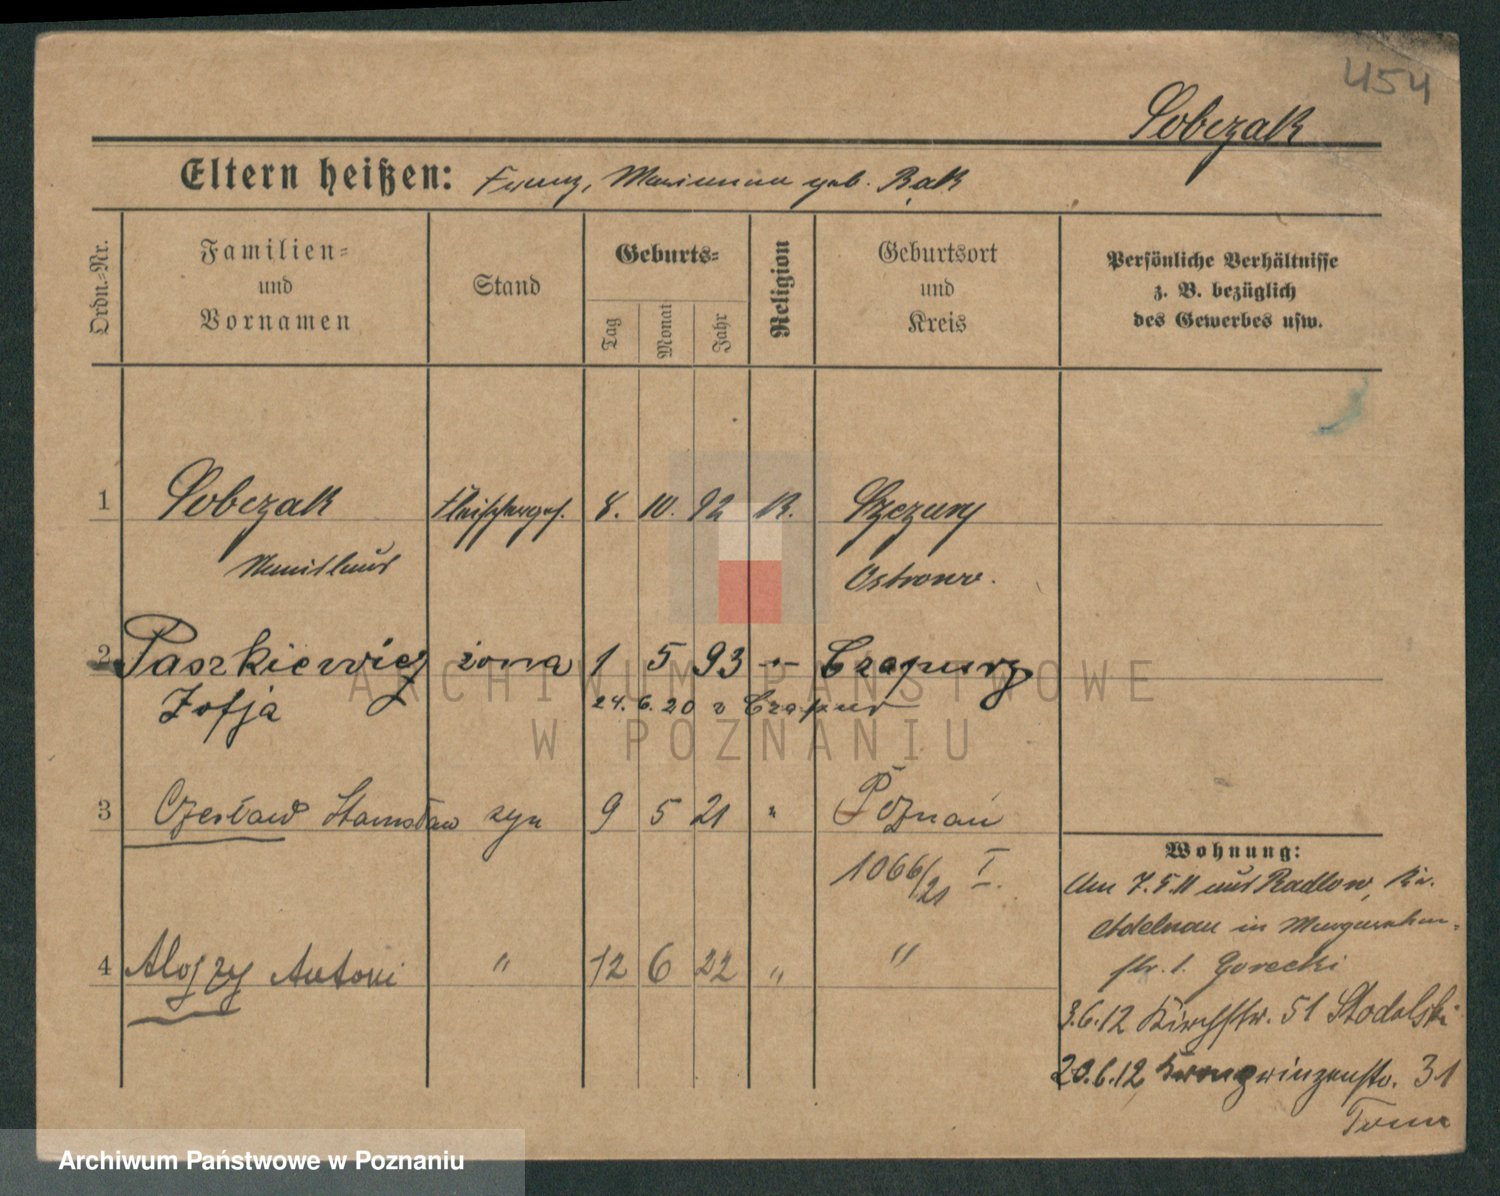 454
Sobczak
Eltern heißen: Franz, Marianna geb. Bąk
Ordn.-Nr.
Familien-
und
Vornamen
Stand
Geburts-
Tag
Monat
Jahr
Religion
Geburtsort
und
Kreis
Persönliche Verhältnisse
z. B. bezüglich
des Gewerbes usw.
1 Sobczak Fleischerges. 8. 10. 92 K. Szczury
Ostrowo.
2 Paszkiewicz żona 1 5 93 -"- Czapury
Zofja 24. 6. 20 z Czapur
3 Czesław Stanisław syn 9 5 21 " Poznań
1066/21 I.
4 Alojzy Antoni " 12 6 22 " "
Wohnung:
Am 7.5.11 aus Radlow, Kr.
Adelnau in
str. 1. Gorecki
3.6.12 Kirchstr. 51 Stodolski
20.6.12 Kronprinzenstr. 31
ARCHIWUM PAŃSTWOWE
W POZNANIU
Archiwum Państwowe w Poznaniu